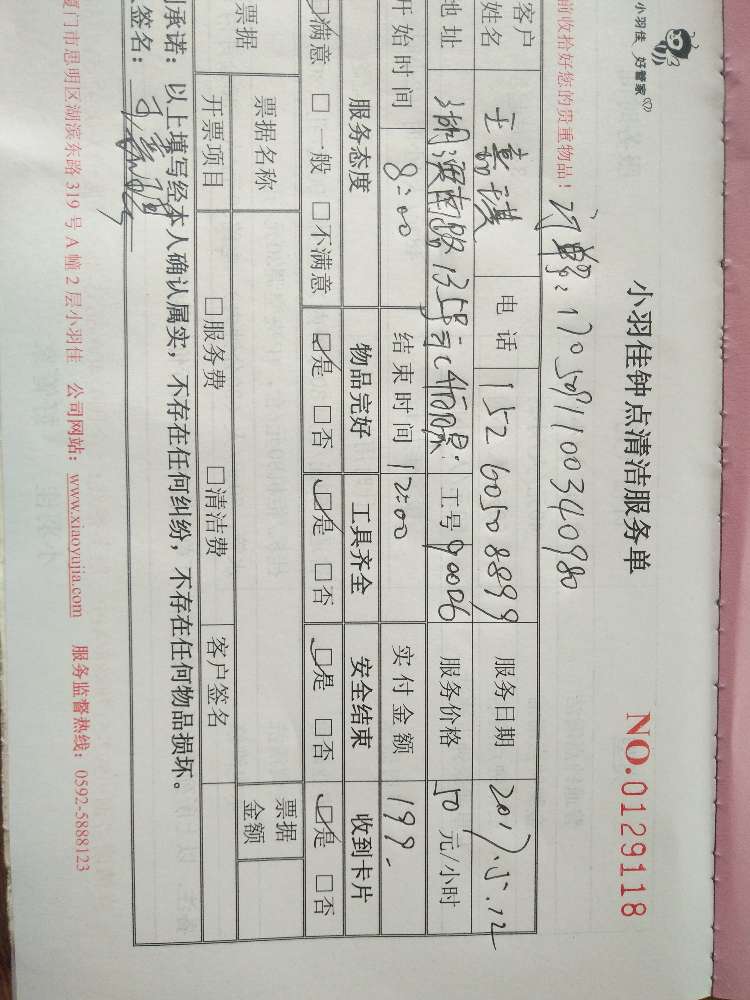 小羽佳 好管家
小羽佳钟点清洁服务单
NO.0129118
前收拾好您的贵重物品!
1705091100340980
客户姓名 电话 15260508899 服务日期
地址 工号 90006 服务价格 50 元/小时
开始时间 8:00 结束时间 12:00 实付金额 199.
服务态度 物品完好 工具齐全 安全结束 收到卡片
☑满意 □一般 □不满意 ☑是 □否 ☑是 □否 ☑是 □否 ☑是 □否
票据 票据名称 票据金额
开票项目 □服务费 □清洁费 客户签名
承诺:以上填写经本人确认属实,不存在任何纠纷,不存在任何物品损坏。
签名:
厦门市思明区湖滨东路 319 号 A 幢 2 层小羽佳 公司网站:www.xiaoyujia.com 服务监督热线:0592-5888123